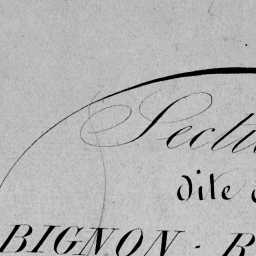 Secti
dite
BIGNON - R